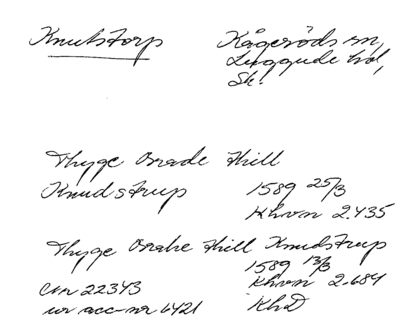 Knutstorp Kågeröds sn,
Luggude hd,
Sk.
Thyge Brade thill
Knudstrup 1589 25/3
Khvn 2.435
Thyge Brahe thill Knudstrup
1589 13/3
cur 22343 Khvn 2.684
ur acc-nr 6421 KhD